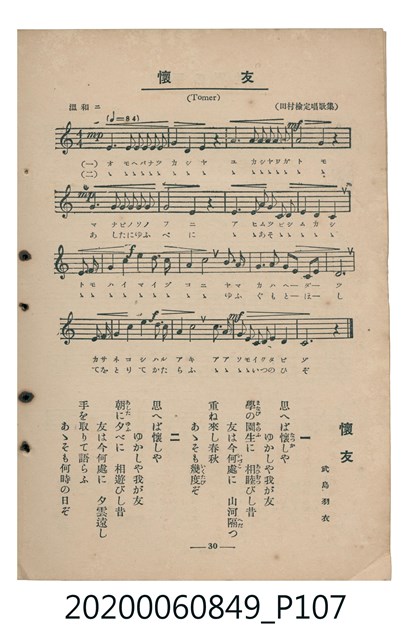 懷友
(Tomer)
溫和ニ
(♩=84)
(田村檢定唱歌集)
mp
mf
(一) オモヘバナツカシヤ ユカシヤワガトモ
(二)
マナビノソノフニ アヒムツビシムカシ
あしたにゆふべに あそ
トモハイマイヅコニ ヤマカハヘダーツ
ゆふぐもとほーし
カサネコシハルアキ アアソモイクタビゾ
てをとりてかたらふ いつのひぞ
懷友
武島羽衣
一
思へば懷しや
ゆかしや我が友
學の園生に 相睦びし昔
友は今何處に 山河隔つ
重ね來し春秋
あゝそも幾度ぞ
二
思へば懷しや
ゆかしや我が友
朝に夕べに 相遊びし昔
友は今何處に 夕雲遠し
手を取りて語らふ
あゝそも何時の日ぞ
30
20200060849_P107